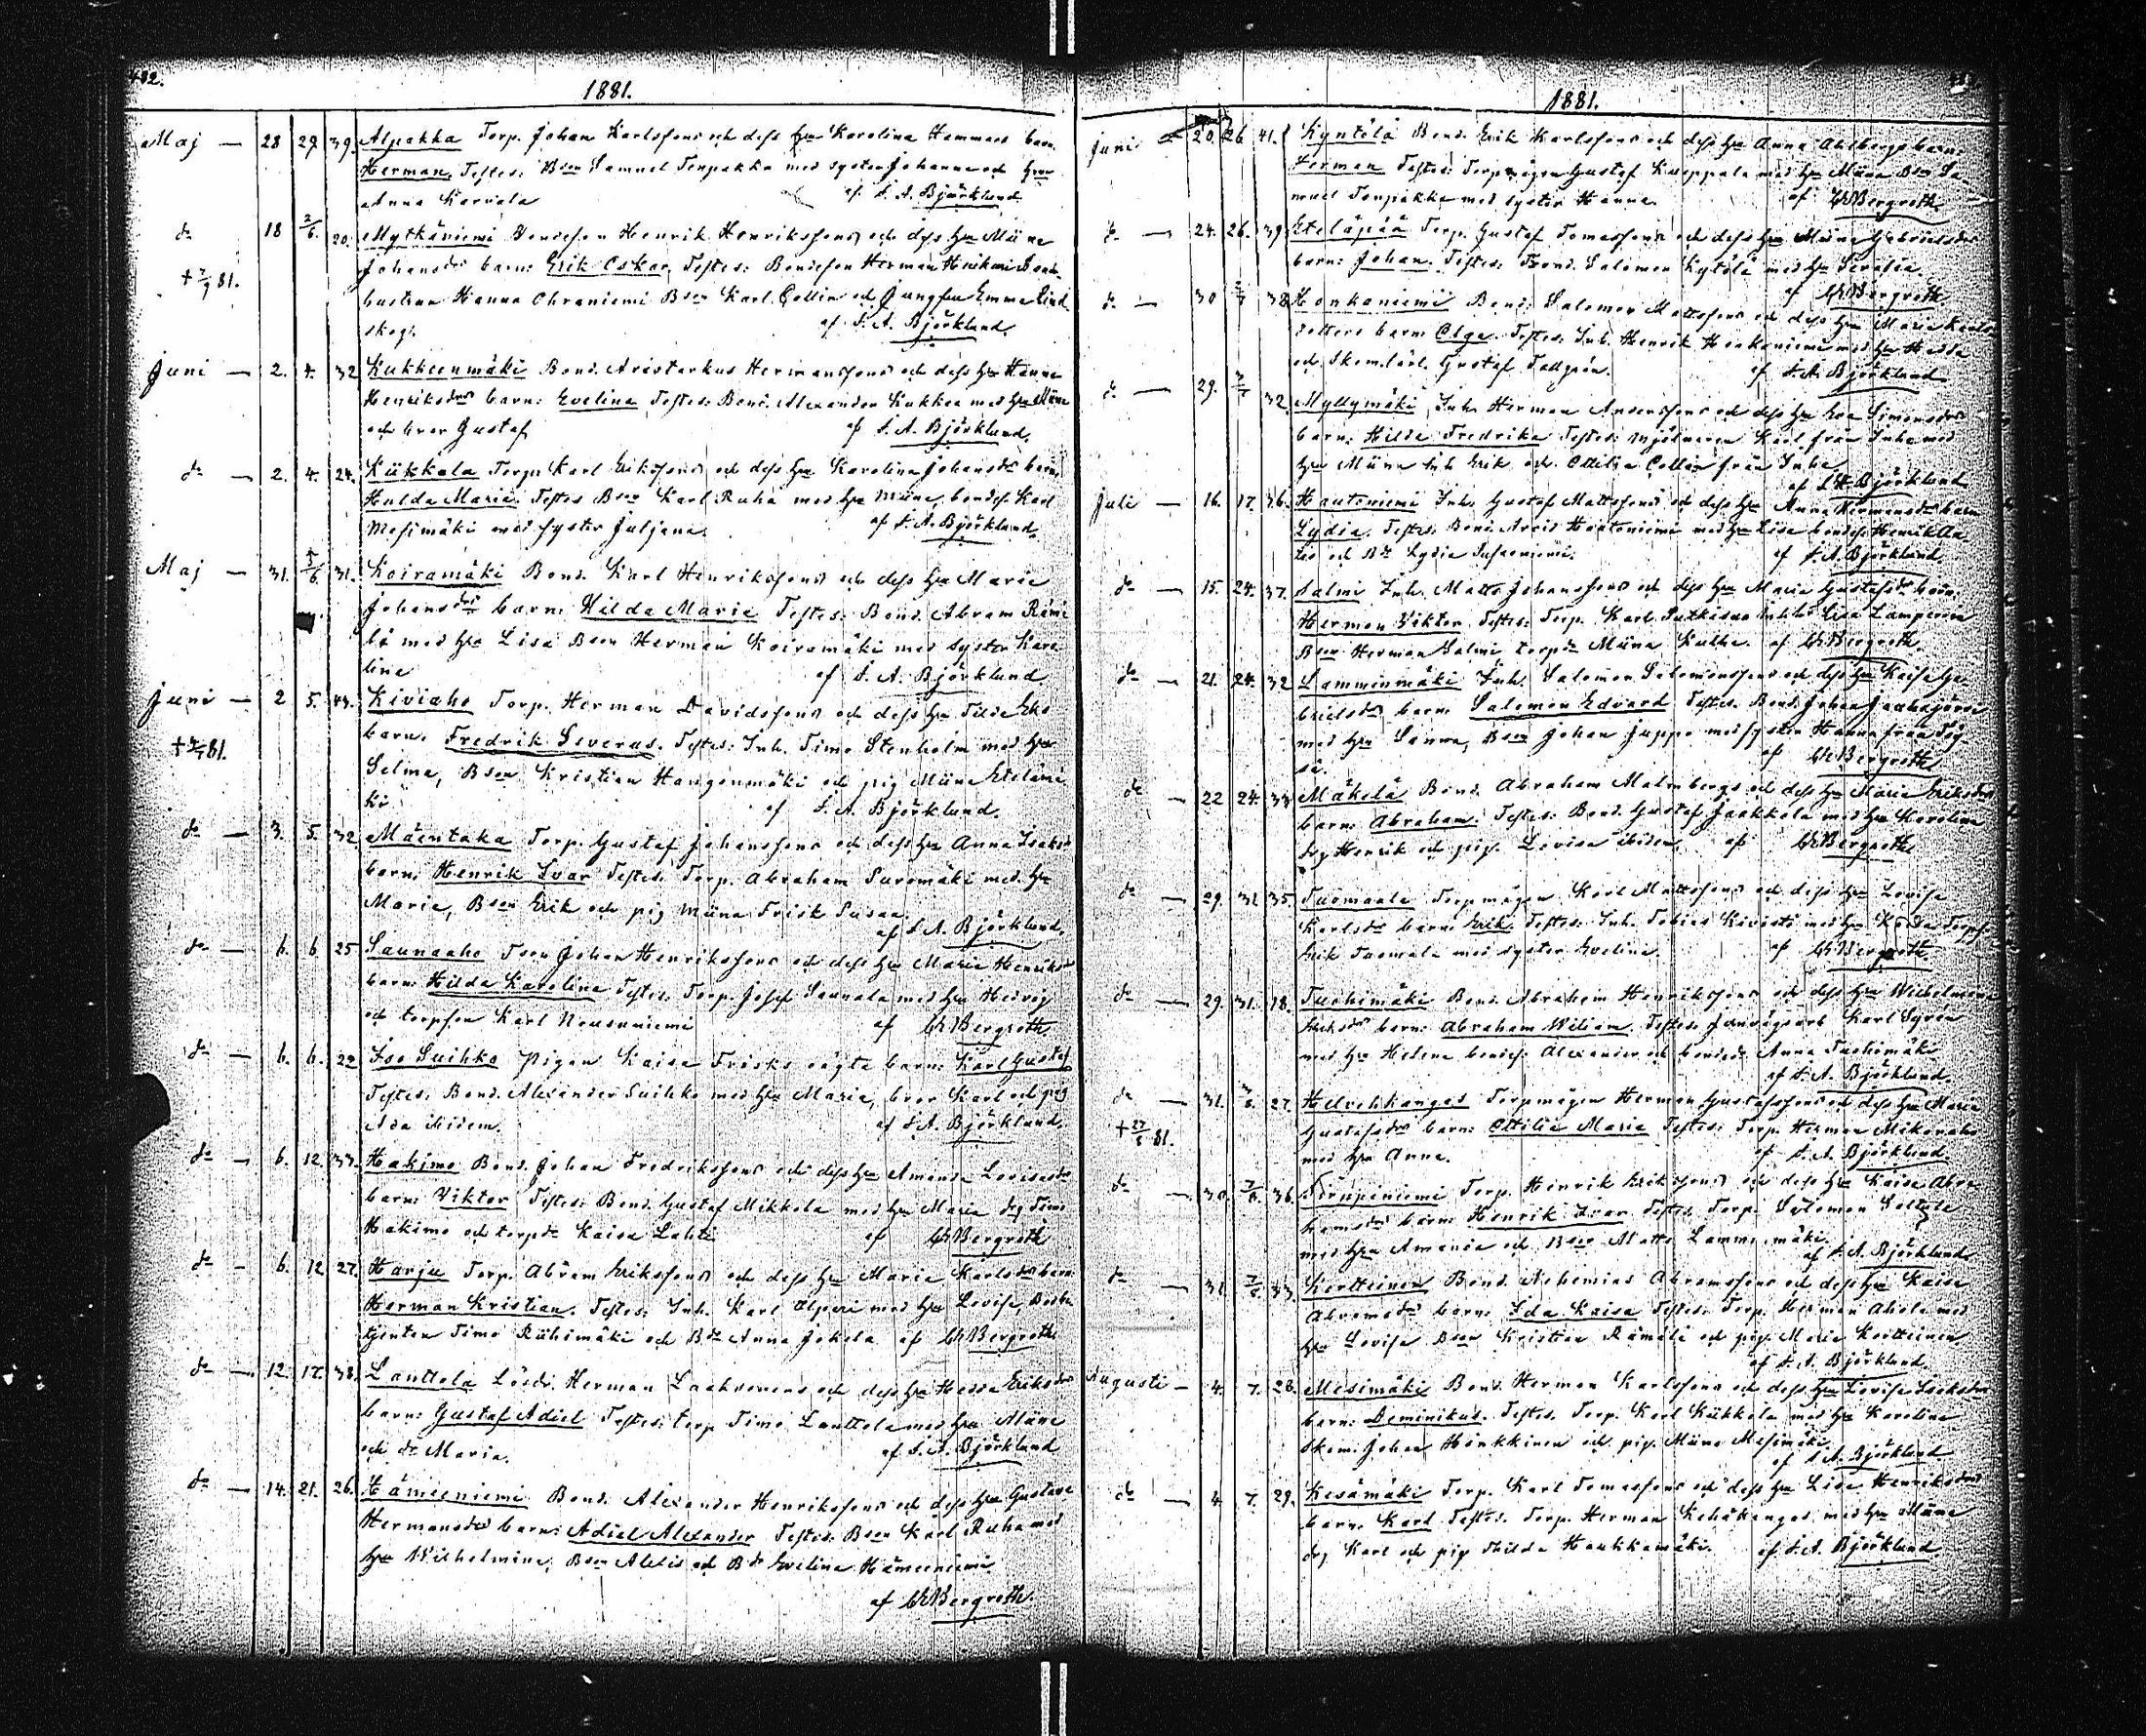 482.
1881.
Maj — 28 29 39. Alpakka Torp. Johan Karlssons och dess hu Karolina Hammars barn
Herman, Testes: Bson Samuel Torpakka med syster Johanna och hu
Anna Karvala af S. A. Björklund
do 18 2/6. 20. Mytkäniemi Bondeson Henrik Henrikssons och dess hu Miina
Johansdr barn: Erik Oskar, Testes: Bondeson Herman
+ 7/9 81. hustrun Hanna Bson Karl Collin och Jungfru Emma Lind
skog. af S. A. Björklund.
Juni — 2. 4. 32 Kukkeenmäki Bond. Aristarkus Hermanssons och dess hu Hanna
Henriksdrs barn: Evelina, Testes: Bond. Alexander Kukkea med hu Miina
och bror Gustaf af S. A. Björklund.
do — 2. 4. 24. Kiikkala Torp. Karl Erikssons och dess hu Karolina Johansdr barn:
Hulda Maria. Testes Bson Karl Ruha med hu Miina, bondes. Karl
Mesimäki med syster Juljana. af S. A. Björklund.
Maj — 31. 5/6. 31. Koiramäki Bond. Karl Henrikssons och dess hu Maria
Johansdrs barn: Hilda Maria Testes: Bond. Abram Rämä
lä med hu Lisa Bson Herman Koiramäki med syster Karo-
lina af S. A. Björklund
Juni — 2 5. 43. Kiviaho Torp. Herman Davidssons och dess hu Tilda Eks
barn: Fredrik Severus. Testes: Inh. Timo Stenholm med hu
+ 81. Selma, Bson Kristian Haugenmäki och pig Miina Etelämä
ki af S. A. Björklund.
do — 3. 5. 32 Mäentaka Torp. Gustaf Johanssons och dess hu Anna Isaksd
barn: Henrik Ivar Testes: Torp. Abraham Suromäki med hu
Maria, Bson Erik och pig Miina Frisk Susan.
af S. A. Björklund.
do — 6. 6 25 Saunaaho Tson Johan Henrikssons och dess hu Maria Henriksd
barn: Hilda Karolina Testes: Torp. Josef Saunala med hu Hedvig
och torpson Karl Nousuniemi af Bergroth.
do — 6. 6. 22 Iso Suihko Pigan Kaisa Frisks oägta barn: Karl Gustaf
Testes: Bond. Alexander Suihko med hu Maria, bror Karl och pig
Ada ibidem. af S. A. Björklund.
do — 6. 12. 33. Hakimo Bond. Johan Fredrikssons och dess hu Amanda Lovisasdr
barn: Viktor Testes: Bond. Gustaf Mikkola med hu Maria drg Timo
Hakimo och torpdr Kaisa Lahti af Bergroth
do — 6. 12 27. Harju Torp. Abram Erikssons och dess hu Maria Karlsdrs barn
Herman Kristian. Testes: Inh. Karl Alperi med hu Lovisa, Beth-
tjenten Timo Riihimäki och Bdr Anna Jokela af Bergroth
do — 12. 17. 38. Lanttola Lösdr. Herman Laaksonens och dess hu Hedda Eriksdr
barn: Gustaf Adiel Testes: torp Timo Lanttola med hu Miina
och dr Maria. af S. A. Björklund
do — 14. 21. 26. Hämeeniemi Bond. Alexander Henrikssons och dess hu Gustava
Hermansdrs barn: Adiel Alexander Testes: Bson Karl Ruha med
hu Wilhelmina, Bson Alexis och Bdr Evelina Hämeeniemi
af Bergroth.
1881.
Juni — 20. 26 41. Kyntölä Bond. Erik Karlssons och dess hu Anna Ahlbergs barn:
Herman Testes: Torpmågen Gustaf Kuoppala med hu Miina Bson Sa-
muel Torpakka med syster Hanna. af Bergroth
do — 24. 26. 39 Eteläpää Torp. Gustaf Tomassons och dess hu Miina Gabrielsdr
barn: Johan. Testes: Bond. Salomon Kytölä med hu Serafia.
af Bergroth
do — 30 32 Honkaniemi Bond. Salomon Mattssons och dess hu Maria Karls-
dotters barn: Olga. Testes: Inh. Henrik Honkaniemi med hu Hedda
och Skom.lärl. Gustaf Tallgrén. af S. A. Björklund
do — 29. 32 Myllymäki, Inh. Herman Anderssons och dess hu Eva Simonsdrs
barn: Hilda Fredrika Testes: Mjölnaren Karl från Inha med
hu Miina Inh Erik och Ottilia Collin från Inha
af S. A. Björklund
Juli — 16. 17. 36. Hautoniemi Inh. Gustaf Mattssons och dess hu Anna Hermansdr barn
Lydia. Testes: Bond. Arvid Hautoniemi med hu Lisa bondes. Henrik
och Bdr Lydia af S. A. Björklund
do — 15. 24. 37. Salmi Inh. Matts Johanssons och dess hu Maria Gustafsdr barn:
Herman Viktor, Testes: Torp. Karl Lisa Lamperin
Bson Herman Salmi torpdr Miina Kulhe. af Bergroth.
do — 21. 24. 32 Lamminmäki Inh. Salomon Salomonssons och dess hu Kaisa Ga-
brielsdr barn: Salomon Edvard Testes: Bond. Johan Jauhojärvi
med hu Sanna, Bson Johan Juppo med syster Hanna från Töy-
sä. af Bergroth
do — 22 24. 33 Mäkelä Bond. Abraham Malmbergs och dess hu Maria Eriksdrs
barn: Abraham. Testes: Bond. Gustaf Jaakkola med hu Karolina
drg Henrik och pig. Lovisa ibidem. af Bergroth
do — 29. 31 35. Tuomaala Torpmågen Karl Mattssons och dess hu Lovisa
Karlsdr barn: Erik, Testes: Inh. Tobias Kivistö med hu
Erik Tuomala med syster Evelina. af Bergroth.
do — 29. 31. 18. Tuohimäki Bond. Abraham Henrikssons och dess hu Wilhelmina
Eriksdrs barn: Abraham Wiliam. Testes: Jernvägsarb Karl Syrén
med hu Helena bondes. Alexander och bondedr Anna Tuohimäki
af S. A. Björklund.
do — 31. 27. Helvetikangas Torpmågen Herman Gustafssons och dess hu Maria
+ 81. Gustafsdrs barn: Ottilia Maria Testes: Torp. Herman Mikonaho
med hu Anna. af S. A. Björklund.
do — 30. 36. Torp. Henrik Erikssons och dess hu Kaisa Abra-
hamsdrs barn: Henrik Ivar Testes: Torp. Salomon
med hu Amanda och Bson Matts Lamminmäki.
af S. A. Björklund
do — 31 33. Kortteinen Bond. Nehemias Abramssons och dess hu Kaisa
Abramsdrs barn: Ida Kaisa Testes: Torp. Herman Ahola med
hu Lovisa Bson Kristian Rämälä och pig. Maria Kortteinen
af S. A. Björklund.
Augusti — 4. 7. 28. Mesimäki Bond. Herman Karlssons och dess hu Lovisa Isaksdrs
barn: Dominikus. Testes. Torp. Karl Kiikkola med hu Karolina
Skom. Johan Hönkkinen och pig. Miina Mesimäki.
af S. A. Björklund
do — 4 7. 29. Kesämäki Torp. Karl Tomassons och dess hu Lisa Henriksdrs
barn: Karl Testes: Torp. Herman Kohäkangas med hu Miina
drg Karl och pig Hilda Haukkamäki. af S. A. Björklund.